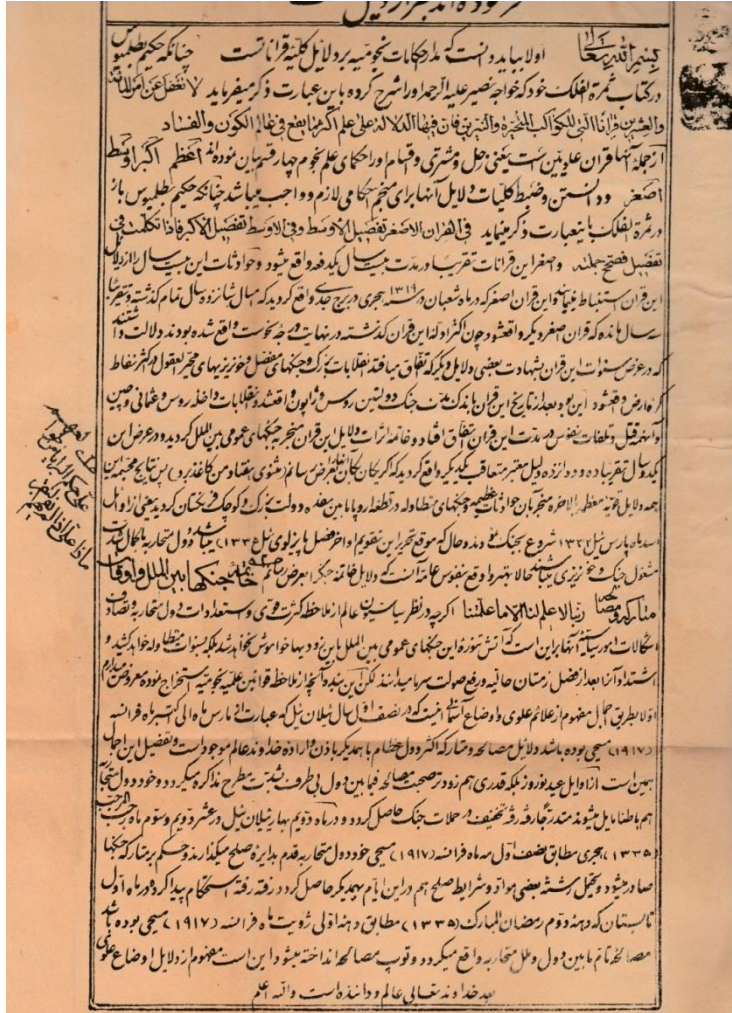 بسم الله تعالی اولا بباید دانست که مدار احکامات نجومیه بر دلایل کلیه قرانات است چنانکه حکیم بطلمیوس
در کتاب ثمرة الفلک خود که خواجه نصیر علیه الرحمه او را شرح کرده باین عبارت ذکر میفرماید لا تغفل عن امر المائة
والعشرین قرانا التی للکواکب المتحیرة والنیرین فان فیها الدلالة علی علم اکثر ما یقع فی عالم الکون والفساد
از جمله آنها قران علویین است یعنی زحل و مشتری و اقسام او را حکمای علم نجوم چهار قسم بیان نموده‌اند اعظم اکبر اوسط
اصغر و دانستن و ضبط کلیات و دلایل آنها برای منجم احکامی لازم و واجب میباشد چنانکه حکیم بطلمیوس باز
در ثمرة الفلک باینعبارت ذکر مینماید فی القران الاصغر تفصیل الاوسط وفی الاوسط تفصیل الاکبر فاذا تکلمت فی
تفصیل فصحح جملته و اصغر این قرانات تقریبا در مدت بیست سال یکدفعه واقع میشود و حوادثات این بیست سال را از دلایل
این قران استنباط مینمایند و این قران اصغر که در ماه شعبان در سنه ۱۳۱۹ هجری در برج جدی واقع گردید که امسال شانزده سال تمام گذشته و تقریبا
سه سال مانده که قران اصغر دیگر واقعشود چون اکثر ادله این قران گذشته در نهایت درجه نحوست واقع شده بودند دلالت داشتند
که در عرض سنوات این قران بشهادت بعضی دلایل دیگر که اتفاق میافتد انقلابات بزرگ و جنگهای مفصل و خونریزیهای محیر العقول در اکثر نقاط
کره ارض واقعشود این بود بعد از تاریخ این قران باندک مدت جنگ دولتین روس و ژاپون واقعشد و انقلابات داخله روس و عثمانی و چین
و آنهمه قتل و تلفات نفوس در مدت این قران اتفاق افتاد و خاتمه اثرات دلایل این قران منجر به جنگهای عمومی بین الملل گردید و در عرض این
یکدو سال تقریبا ده دوازده دلیل معتبر متعاقب یکدیگر واقع گردید که اگر یکان یکان آنها را بعرض رسانم (مثنوی هفتاد من کاغذ بود) پس نتایج محتمه این
همه دلایل قویه معظمه بالاخره منجر بآن حوادثات عظیمه و جنگهای متطاوله در قطعه اروپا مابین هفده دولت بزرگ و کوچک فرنگستان گردید یعنی از اوایل
اسد ماه پارس ئیل ۱۳۳۲ شروع بجنگ نمودند و حال که موقع تحریر این تقویم و اواخر فصل پائیز لوی ئیل ۱۳۳۰ میباشد دول متحاربه با کمال شدت
مشغول جنگ و خونریزی میباشند حالا بهتر و اوقع نفوس عامه آنست که دلایل خاتمه جنگ را بعرض رسانم خاتمه جنگها بین الملل و اوقات
متارکه و مصالحه ربنا لا علم لنا الا ما علمتنا اگرچه در نظر سیاسیون عالم از ملاحظه کثرت قوی و استعدادات دول متحاربه و تصادف
اشکالات امور سیاسیه آنها بر این است که آتش تنوره این جنگهای عمومی بین الملل باین زودیها خواموش نخواهد شد بلکه بسنوات متطاوله خواهد کشید و
اشتداد آنرا بعد از فصل زمستان حالیه و رفع صولت سرما میدانند لکن این بنده آنچه از ملاحظه قوانین علمیه نجومیه استخراج نموده معروض میدارم
اولا بطریق اجمال مفهوم از علائم علوی و اوضاع آسمانی اینست که در نصف اول سال ئیلان ئیل که عبارت از مارس ماه الی سپتمبر ماه فرانسه
(۱۹۱۷) مسیحی بوده باشد دلایل مصالحه و متارکه اکثر دول عظام با همدیگر باذن و اراده خداوند عالم موجود است و تفصیل این اجمال
بهمین است از اوایل عید نوروز بلکه قدری هم زودتر صحبت مصالحه فیمابین دول بیطرف بشدت مطرح مذاکره میگردد و خود دول متحاربه
هم باطنا مایل میشوند متدرجا رفته رفته تخفیف در حملات جنگ حاصل گردد و در ماه دویم بهار ئیلان ئیل در عشر دویم و سوم ماه رجب المرجب
(۱۳۳۵) هجری مطابق نصف اول مه ماه فرانسه (۱۹۱۷) مسیحی خود دول متحاربه قدم بدایره صلح میگذارند و حکم بر متارکه جنگها
صادر میشود و تحیل رشته بعضی مواد و شرایط صلح هم در این ایام بهمدیگر حاصل گردد رفته رفته استحکام پیدا کرده در ماه اول
تابستان که دهه دوم رمضان المبارک (۱۳۳۵) مطابق دهه اولی ژویت ماه فرانسه (۱۹۱۷) مسیحی بوده باشد
مصالحه تام مابین دول و ملل متحاربه واقع میگردد و توپ مصالحه انداخته میشود این است مفهوم از دلایل اوضاع علوی
بعد خداوند تعالی عالم و داننده است والله اعلم